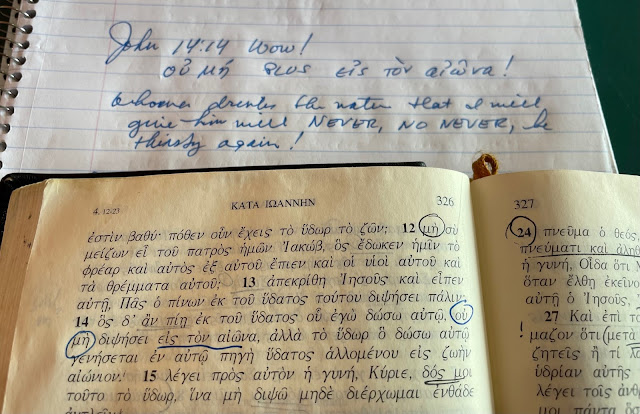 John 14:14 Wow!
οὐ μή PLUS εἰς τὸν αἰῶνα!
whoever drinks the water that I will
give him will NEVER, NO NEVER, be
thirsty again!
4, 12-23 ΚΑΤΑ ΙΩΑΝΝΗΝ 326
ἐστὶν βαθύ· πόθεν οὖν ἔχεις τὸ ὕδωρ τὸ ζῶν; 12 μὴ σὺ
μείζων εἶ τοῦ πατρὸς ἡμῶν Ἰακώβ, ὃς ἔδωκεν ἡμῖν τὸ
φρέαρ καὶ αὐτὸς ἐξ αὐτοῦ ἔπιεν καὶ οἱ υἱοὶ αὐτοῦ καὶ
τὰ θρέμματα αὐτοῦ; 13 ἀπεκρίθη Ἰησοῦς καὶ εἶπεν
αὐτῇ, Πᾶς ὁ πίνων ἐκ τοῦ ὕδατος τούτου διψήσει πάλιν·
14 ὃς δ' ἂν πίῃ ἐκ τοῦ ὕδατος οὗ ἐγὼ δώσω αὐτῷ, οὐ
μὴ διψήσει εἰς τὸν αἰῶνα, ἀλλὰ τὸ ὕδωρ ὃ δώσω αὐτῷ
γενήσεται ἐν αὐτῷ πηγὴ ὕδατος ἁλλομένου εἰς ζωὴν
αἰώνιον. 15 λέγει πρὸς αὐτὸν ἡ γυνή, Κύριε, δός μοι
τοῦτο τὸ ὕδωρ, ἵνα μὴ διψῶ μηδὲ διέρχωμαι ἐνθάδε
ἀντλεῖν.
327
24 πνεῦμα ὁ θεός,
πνεύματι καὶ ἀλη
ἡ γυνή, Οἶδα ὅτι
ὅταν ἔλθῃ ἐκεῖνο
αὐτῇ ὁ Ἰησοῦς,
27 Καὶ ἐπὶ το
! μαζον ὅτι μετὰ
ζητεῖς ἢ τί
ὑδρίαν αὐτῆς
λέγει τοῖς ἀνθ
μοι πάντα ὅσ